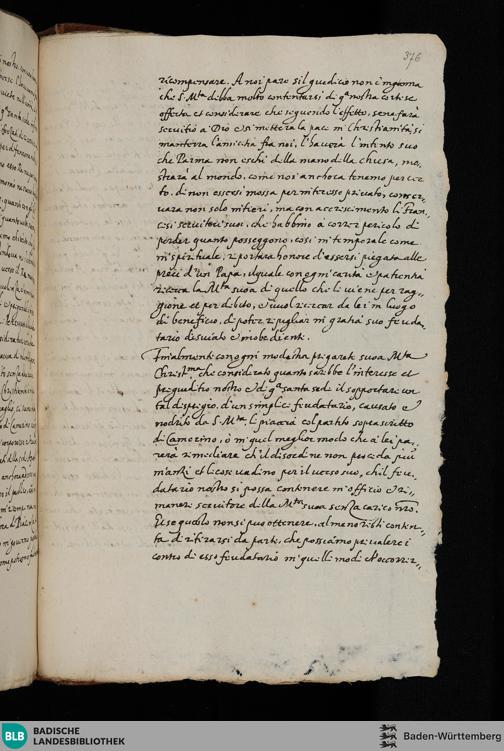 376
ricompensare. A noi pare s'il giudicio non c'inganna
che S. Mta debba molto contentarsi di qta nostra cortese
offerta et considerare che seguendo l'effetto, se ne farà
servitio a Dio, et si mettera la pace in Christianità, si
manterrà l'amicitia fra noi, l'haverà l'intento suo
che Parma non eschi della mano della chiesa, mo,,
strarà al mondo, come noi anchora tenemo per cer
to, di non essersi mossa per interesse privato, conser,,
varà non solo intieri, ma con accrescimento li Fran,,
cesi servitori suoi, che habbino a correr pericolo di
perder quanto posseggono, così in temporale come
in spirituale, riportarà honore d'essersi piegata alle
preci d'un Papa, il quale con ogni carità et patientia
ricerca la Mta sua di quello che li viene per rag,,
gione et per debito, et vuol ricercar da lei in luogo
di beneficio, di poter ripigliar in gratia suo feuda,,
tario disviato et inobediente.
Finalmente con ogni modestia pregarete sua Mta
Christma che considerato quanto sarebbe l'interesse et
pregiuditio nostro et di qta santa sede il sopportare un
tal dispregio, d'un simplice feudatario, causato et
nodrito da S. Mta, li piaccia col partito soprascritto
di Camerino, ò in quel meglior modo che a lei pa,,
rerà rimediare ch'il disordine non proceda più
inanti et le cose vadino per il verso suo, ch'il feu,,
datario nostro si possa contenere in officio et ri,,
manere servitore della Mta sua senza carico nro.
Et se questo non si può ottenere, almeno resti conten,,
ta di ritirarsi da parte, che possiamo prevalerci
contro di esso feudatario in quelli modi che occorrir,,
BLB
BADISCHE
LANDESBIBLIOTHEK
Baden-Württemberg